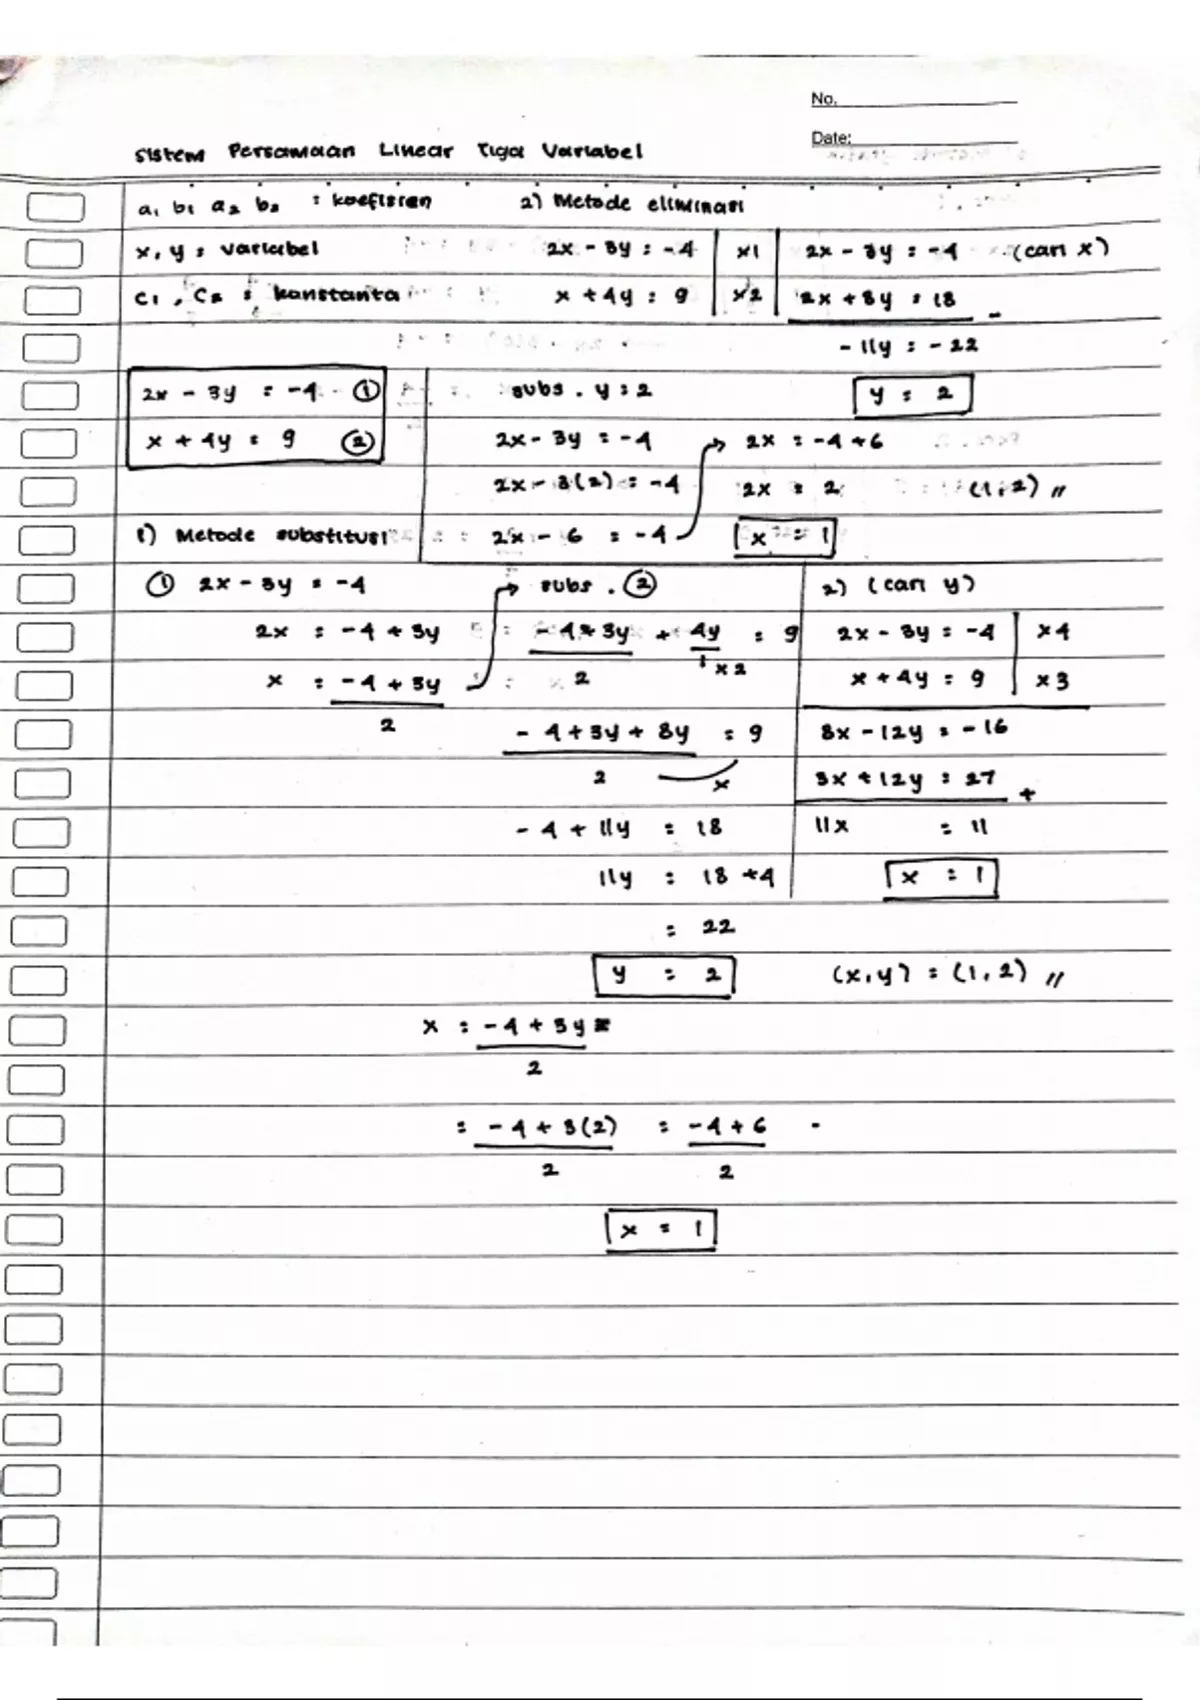 No.
Date:
Sistem Persamaan Linear Tiga Variabel
a1 b1 a2 b2 : koefisien
x, y : variabel
C1, C2 : konstanta
2x - 3y = -4 ①
x + 4y = 9 ②
1) Metode substitusi
① 2x - 3y = -4
2x = -4 + 3y
x = -4 + 3y
2
subs. ②
-4 + 3y + 4y = 9
2 1 x2
-4 + 3y + 8y = 9
2 x
-4 + 11y = 18
11y = 18 + 4
= 22
y = 2
x = -4 + 3y
2
= -4 + 3(2) = -4 + 6
2 2
x = 1
2) Metode eliminasi
2x - 3y = -4 | x1 | 2x - 3y = -4 (cari x)
x + 4y = 9 | x2 | 2x + 8y = 18 -
-11y = -22
y = 2
subs. y = 2
2x - 3y = -4
2x - 3(2) = -4
2x - 6 = -4
2x = -4 + 6
2x = 2 (1, 2) //
x = 1
2) (cari y)
2x - 3y = -4 | x4
x + 4y = 9 | x3
8x - 12y = -16
3x + 12y = 27 +
11x = 11
x = 1
(x, y) = (1, 2) //